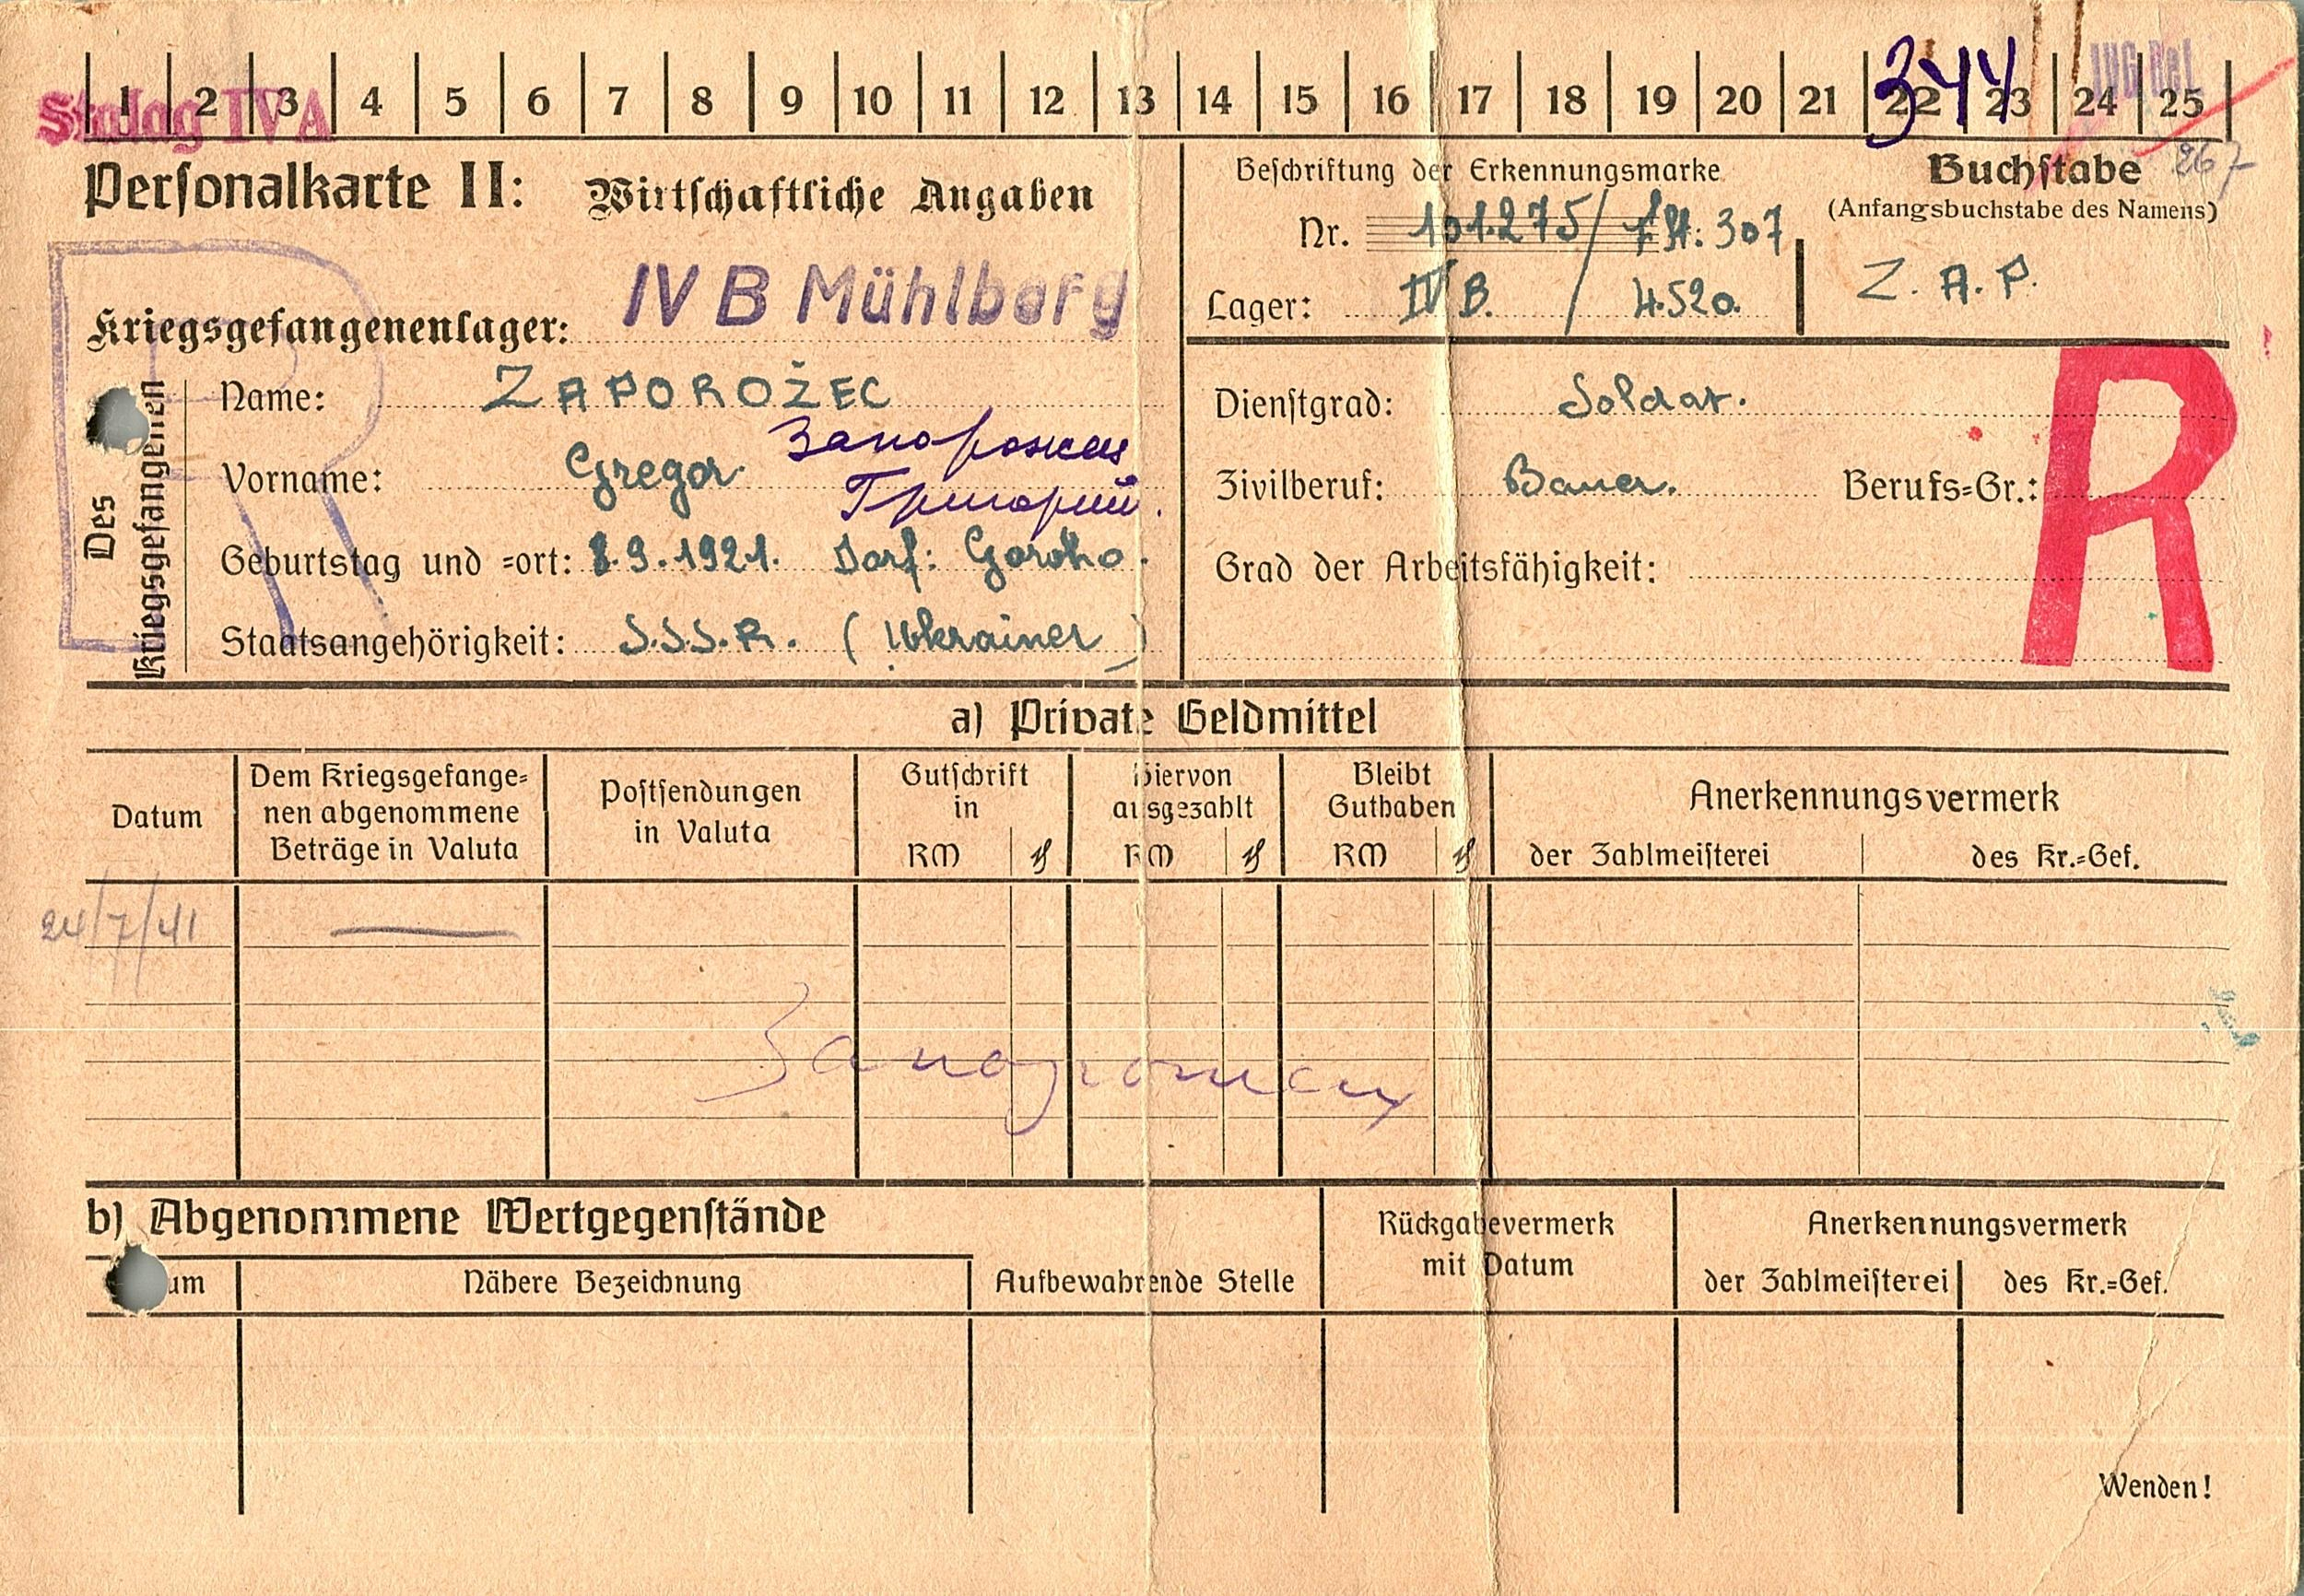 Stalag IVA
1 2 3 4 5 6 7 8 9 10 11 12 13 14 15 16 17 18 19 20 21 22 23 24 25
344
267
Personalkarte II: Wirtschaftliche Angaben
Beschriftung der Erkennungsmarke
Nr. 101.275 / St: 307
Lager: IV B. / 4.520.
Buchstabe
(Anfangsbuchstabe des Namens)
Z. A. P.
Kriegsgefangenenlager: IV B Mühlberg
Des Kriegsgefangenen
Name: ZAPOROŻEC
Запорожец
Vorname: Gregor.
Григорий.
Geburtstag und =ort: 8.9.1921. Dorf: Goroho.
Staatsangehörigkeit: S.S.S.R. (Ukrainer)
Dienstgrad: Soldat.
Zivilberuf: Bauer. Berufs=Gr.:
Grad der Arbeitsfähigkeit:
R
a) Private Geldmittel
Datum
Dem Kriegsgefange=
nen abgenommene
Beträge in Valuta
Postsendungen
in Valuta
Gutschrift
in
RM ₰
Hiervon
ausgezahlt
RM ₰
Bleibt
Guthaben
RM ₰
Anerkennungsvermerk
der Zahlmeisterei des Kr.=Gef.
24/7/41 —
Запорожец
b) Abgenommene Wertgegenstände
um
Nähere Bezeichnung
Aufbewahrende Stelle
Rückgabevermerk
mit Datum
Anerkennungsvermerk
der Zahlmeisterei des Kr.=Gef.
Wenden!